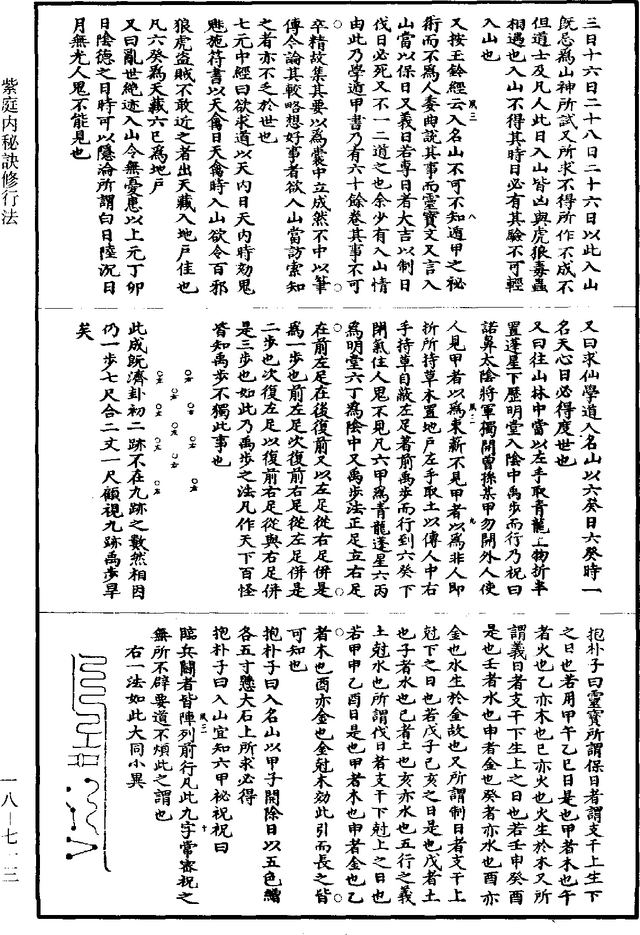 三日十六日二十八日二十六日以此入山
既忌為山神所試又所求不得所作不成不
但道士及凡人此日入山皆凶與虎狼毒蟲
相遇也入山不得其時日必有其驗不可輕
入山也
又按玉鈐經云入名山不可不知遁甲之祕
術而不為人委曲說其事而靈寶文又言入
山當以保日又義日若專日者大吉以制日
伐日必死又不一二道之也余少有入山情
由此乃學遁甲書乃有六十餘卷其事不可
卒精故集其要以為囊中立成然不中以筆
傳令論其較略想好事者欲入山當訪索知
之者亦不乏於世也
七元中經曰欲求道以天內日天內時劾鬼
魅施符書以天禽日天禽時入山欲令百邪
狼虎盜賊不敢近之者出天藏入地戶佳也
凡六癸為天藏六己為地戶
又曰亂世絕迹入山令無憂患以上元丁卯
日陰德之日時可以隱淪所謂白日陸沉日
月無光人鬼不能見也
又曰求仙學道入名山以六癸日六癸時一
名天心日必得度世也
又曰往山林中當以左手取青龍上物折半
置逢星下歷明堂入陰中禹步而行乃祝曰
諾臯太陰將軍獨開曾孫某甲勿開外人使
人見甲者以為束薪不見甲者以為非人即
折所持草本置地戶左手取土以傳人中右
手持草自蔽左足著前禹步而行到六癸下
閉氣住人鬼不見凡六甲為青龍逢星六丙
為明堂六丁為陰中又禹步法正足立右足
在前左足在後復前又以左足從右足併是
為一步也前左足次復前右足從左足併是
二步也次復左足以復前右足從與右足併
是三步也如此乃禹步之法凡作天下百怪
皆知禹步不獨此事也
此成既濟卦初二跡不在九跡之數然相因
仍一步七尺合二丈一尺顧視九跡禹步畢
矣
抱朴子曰靈寶所謂保日者謂支干上生下
之日也若用甲午乙巳日是也甲者木也午
者火也乙亦木也巳亦火也火生於木又所
謂義日者支干下生上之日也若壬申癸酉
是也壬者水也申者金也癸者亦水也酉亦
金也水生於金故也又所謂制日者支干上
尅下之日也若戊子己亥之日是也戊者土
也子者水也己者土也亥亦水也五行之義
土尅水也所謂伐日者支干下尅上之日也
若甲申乙酉日是也甲者木也申者金也乙
者木也酉亦金也金尅木効此引而長之皆
可知也
抱朴子曰入名山以甲子開除日以五色繒
各五寸懸大石上所求必得
抱朴子曰入山宜知六甲祕祝祝曰
臨兵鬥者皆陣列前行凡此九字常審祝之
無所不辟要道不煩此之謂也
右一法如此大同小異
紫庭內秘訣修行法
一八－七一三